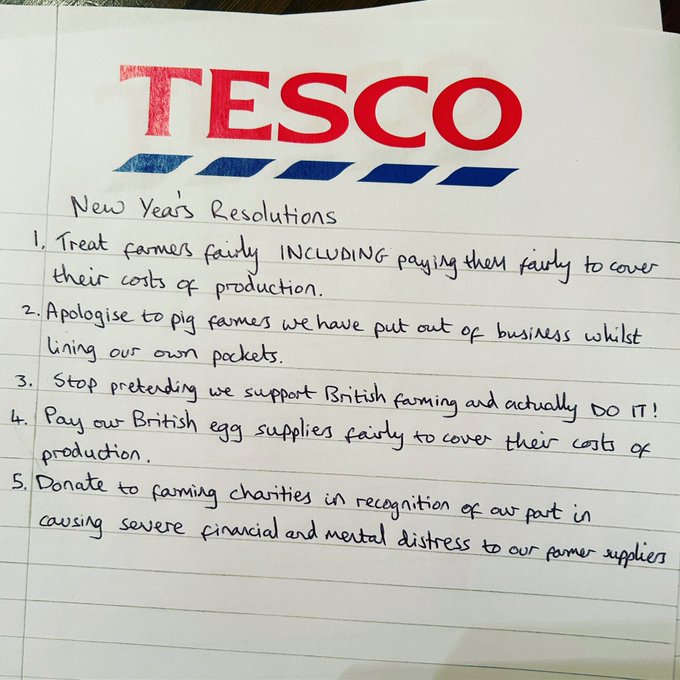 TESCO
New Year's Resolutions
1. Treat farmers fairly INCLUDING paying them fairly to cover
their costs of production.
2. Apologise to pig farmers we have put out of business whilst
lining our own pockets.
3. Stop pretending we support British farming and actually DO IT!
4. Pay our British egg suppliers fairly to cover their costs of
production.
5. Donate to farming charities in recognition of our part in
causing severe financial and mental distress to our farmer suppliers